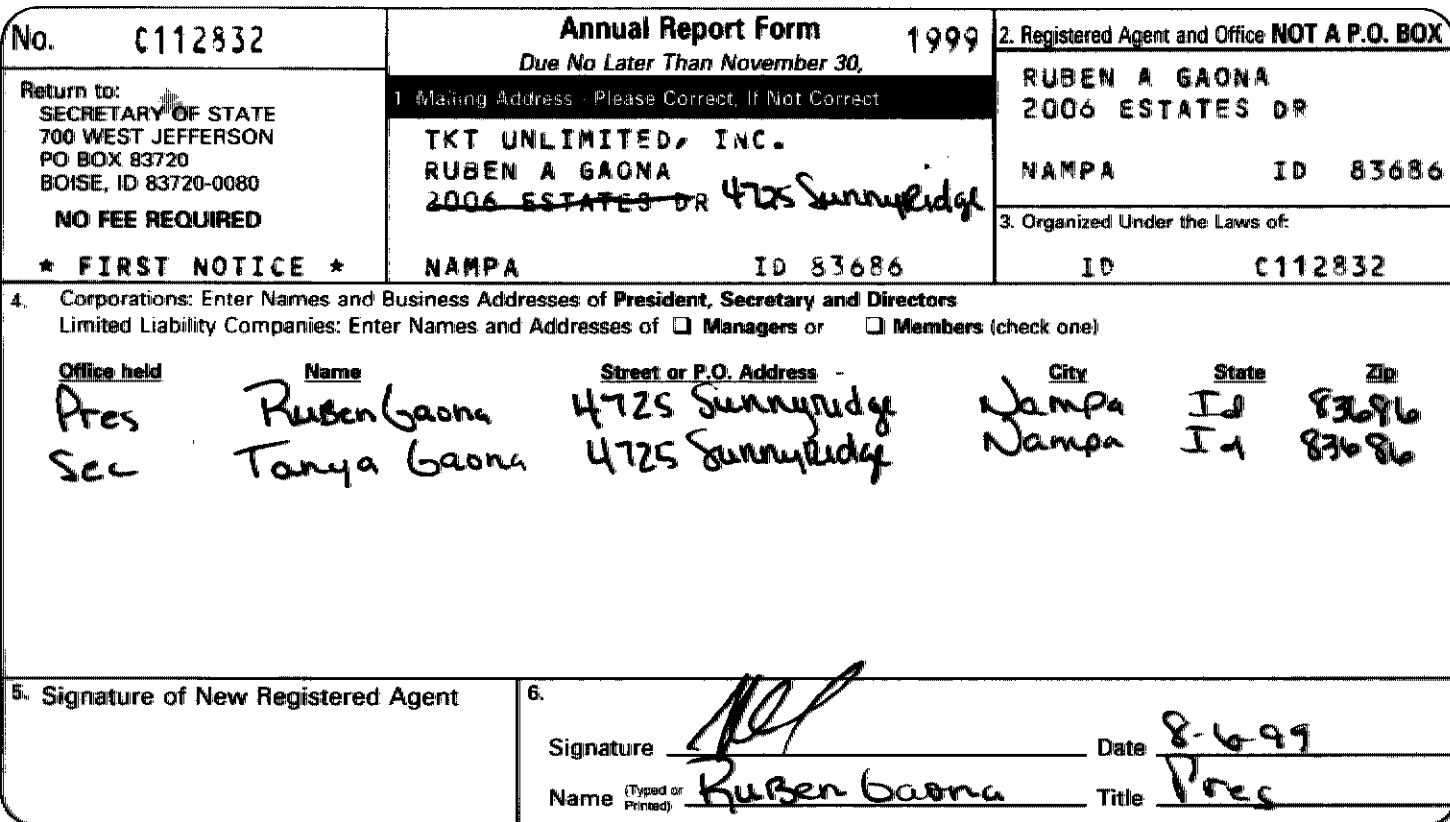 No. C112832
Return to:
SECRETARY OF STATE
700 WEST JEFFERSON
PO BOX 83720
BOISE, ID 83720-0080
NO FEE REQUIRED
* FIRST NOTICE *
Annual Report Form 1999
Due No Later Than November 30,
1 Mailing Address - Please Correct, If Not Correct
TKT UNLIMITED, INC.
RUBEN A GAONA
2006 ESTATES DR 4725 SunnyRidge
NAMPA ID 83686
2. Registered Agent and Office NOT A P.O. BOX
RUBEN A GAONA
2006 ESTATES DR
NAMPA ID 83686
3. Organized Under the Laws of:
ID C112832
4. Corporations: Enter Names and Business Addresses of President, Secretary and Directors
Limited Liability Companies: Enter Names and Addresses of ☐ Managers or ☐ Members (check one)
Office held Name Street or P.O. Address City State Zip
Pres Ruben Gaona 4725 Sunnyridge Nampa Id 83686
Sec Tanya Gaona 4725 SunnyRidge Nampa Id 83686
5. Signature of New Registered Agent
6.
Signature Date 8-6-99
Name (Typed or Printed) RuBen Gaona Title Pres